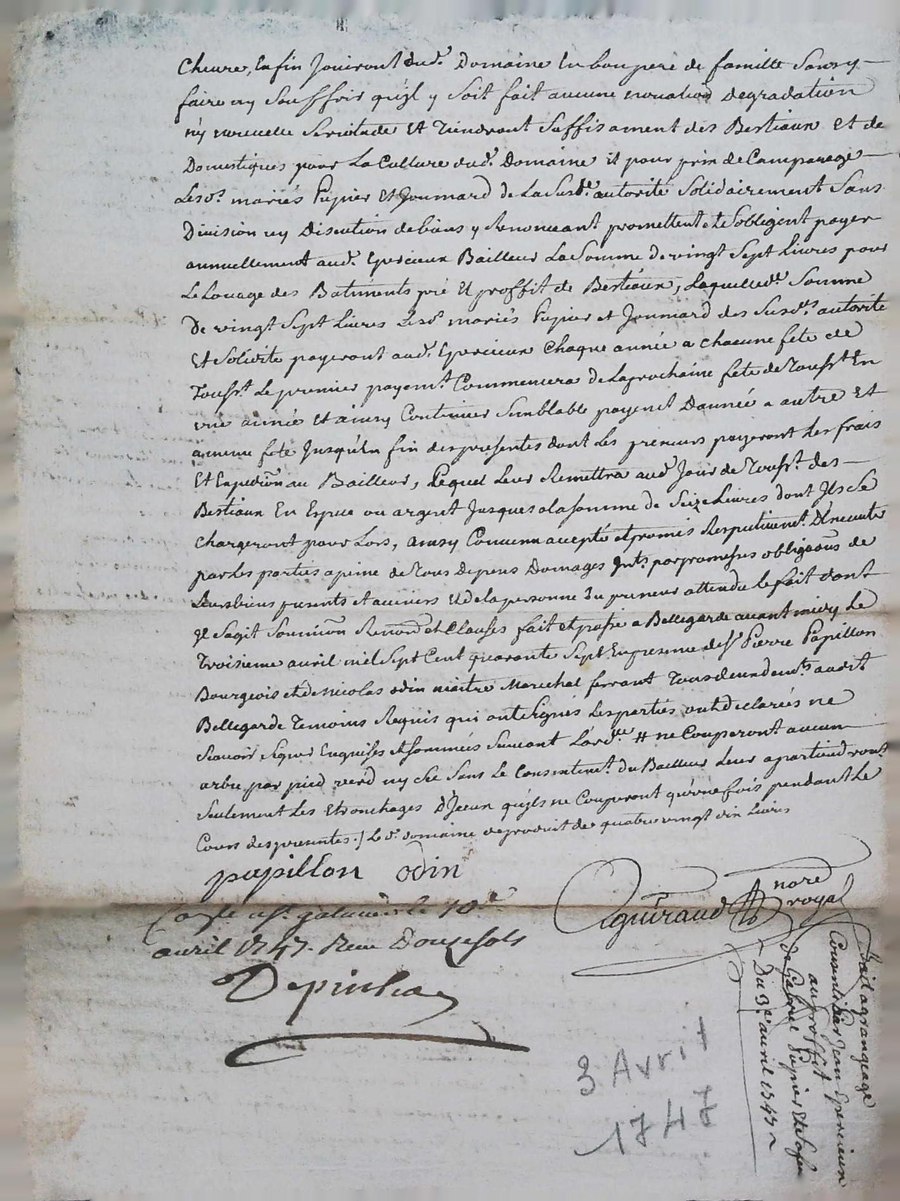 Cheure, Enfin Jouiront dud. Domaine En bon pere de famille Sans y
faire ny Souffrir quil y Soit fait aucune novation Degradation
ny nouvelle Servitude Et Tiendront Suffisament des Bestiaux Et de
Domestiques pour La Culture dud. Domaine il pour prin de Camparage
Lesd. mariés Pupier Et Joumard de La Susd.e autorité Solidairement Sans
Division ny Discution de biens y Renoncant promettent et Sobligent payer
annuellement aud. Epercieux Bailleur La Somme de vingt Sept Livres pour
Le Louage des Batiments pré Et proffit de Bestiaux, Laquelled.e Somme
De vingt Sept Livres Lesd. mariés Pupier et Joumard des Susd.es autorité
Et Solidité payeront aud. Epercieux Chaque année a chacune fete de
Toussts. Le premier payemt. Commencera de La prochaine fete de Toussts En
une année Et ainsy Continuer Semblable payemt D'année a autre Et
a meme fete Jusqu'à la fin des presentes dont Les preneurs payeront Les frais
Et Expedion au Bailleur, Lequel Leur Remettra aud. Jour de Toussts. des
Bestiaux En Espece ou argent Jusques a la somme de Seize Livres dont Ils Se
Chargeront pour Lors, ainsy Convenu accepté et promis Respectivemt D'Executer
par les parties a peine de Tous Depens Domages Ints. par promesses obligaons de
Leurs biens presents et avenirs Et de la personne du preneur attendu le fait dont
Il Sagit Soumion Renon et Clauses fait et passé a Bellegarde avant midy Le
Troisieme avril mil Sept Cent quarante Sept En presence de Sr. Pierre Papillon
Bourgeois et de Nicolas odin maitre Marechal ferrant Tous deux demts. audit
Bellegarde Temoins Requis qui ont Signés Les parties ont declarées ne
Scavoir Signer Enquises et Sommées Suivant L'ord.ce # ne Couperont aucun
arbre par pied verd ny Sec Sans Le Consentemt. du Bailleur Leur apartiendront
Seulement Les Etronchages D'Iceux quils ne Couperont qu'une fois pendant Le
Cours des presentes ./ Le d. domaine de produit de quatre vingt dix Livres
papillon odin
Aguiraud nore royal
Controllé a St. galmier le 10.e
avril 1747. Recu Douze sols
Depinhac
Bail a grangeage
Consenti par Jean Epercieux
au proffit
de Gabriel Pupier Et de Sa fe
Du 3.e avril 1747
3 Avril
1747